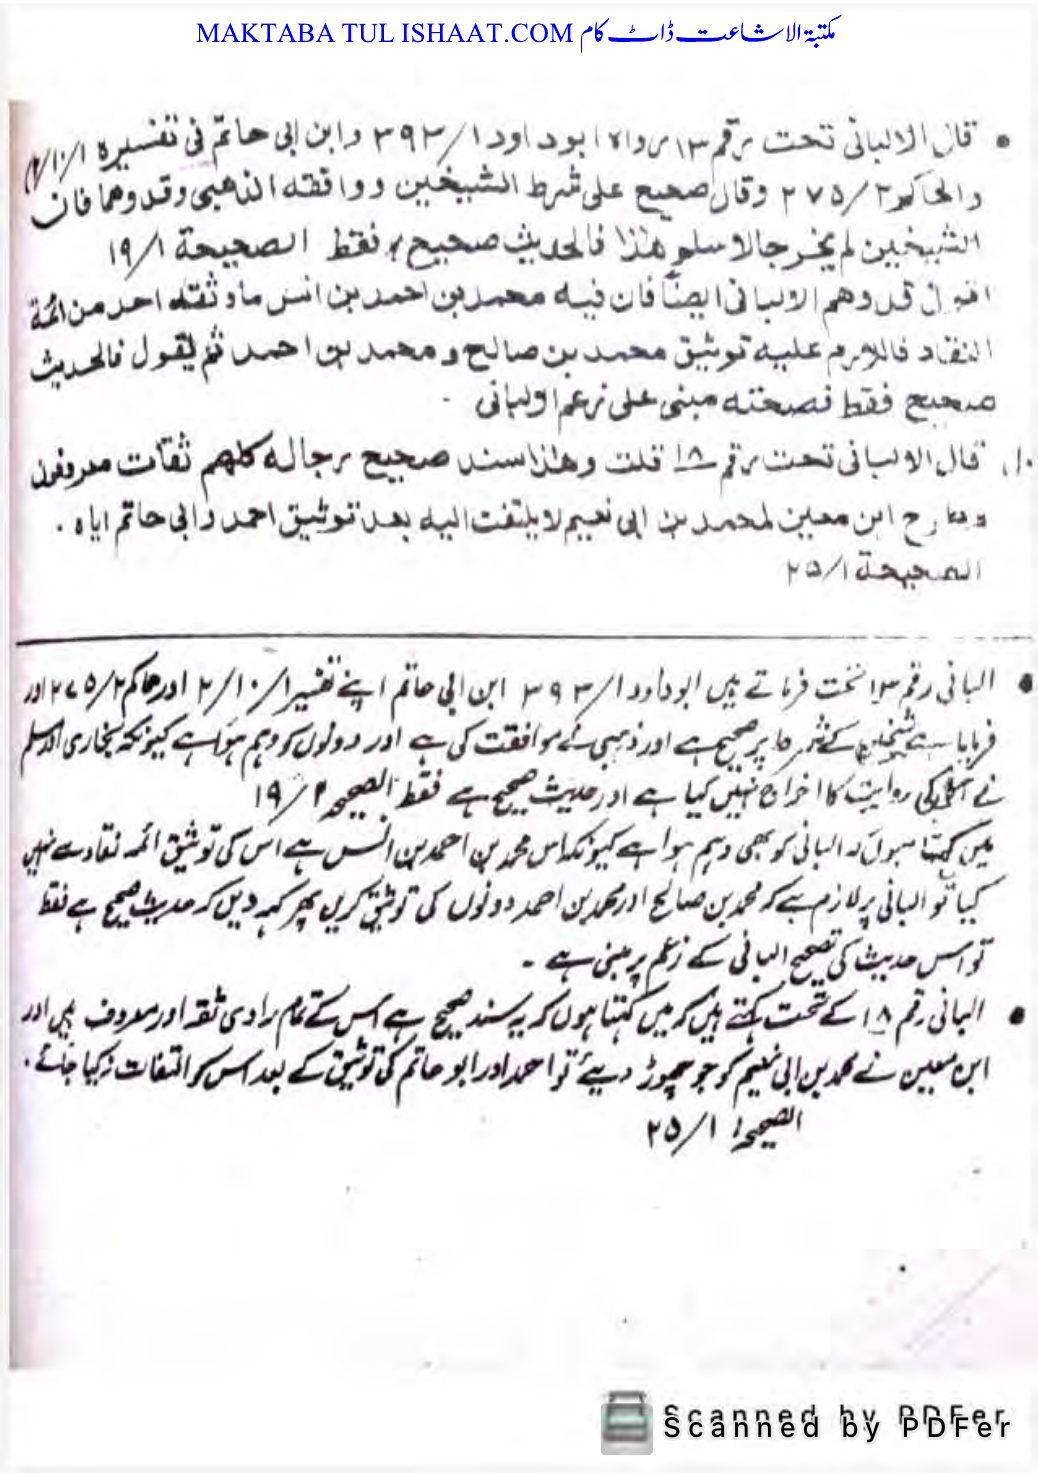 MAKTABA TUL ISHAAT.COM مکتبۃ الاشاعت ڈاٹ کام
قال الالبانی تحت رقم ۱۳ رواہ ابوداود ۳۹۳/۱ وابن ابی حاتم فی تفسیرہ ۲/۱۰/۱
والحاکم ۲۷۵/۲ وقال صحیح علی شرط الشیخین ووافقہ الذھبی وقد وھما فان
الشیخین لم یخرجا لا سلم ھذا فالحدیث صحیح فقط الصحیحة ۱۹/۱
اقول قد وھم الالبانی ایضاً فان فیہ محمد بن احمد بن انس ماوثقہ احد من ائمة
النقاد فاللازم علیہ توثیق محمد بن صالح و محمد بن احمد ثم یقول فالحدیث
صحیح فقط فصحتہ مبنی علی زعم اولبانی
۱۰) قال الالبانی تحت رقم ۱۸ قلت وھذا سند صحیح رجالہ کلھم ثقات معروفون
ابن معین لمحمد بن ابی نعیم لا یلتفت الیہ بعد توثیق احمد وابی حاتم ایاہ .
الصحیحة ۲۵/۱
البانی رقم ۱۳ تحت فرماتے ہیں ابوداود ۳۹۳/۱ ابن ابی حاتم اپنے تفسیر ۲/۱۰/۱ اور حاکم ۲۷۵/۲ اور
فرمایا ہے شیخین کے شرط پر صحیح ہے اور ذہبی نے موافقت کی ہے اور دونوں کو وہم ہوا ہے کیونکہ بخاری اور مسلم
نے کی روایت کا اخراج نہیں کیا ہے اور حدیث صحیح ہے فقط الصحیحہ ۱۹/۲
میں کہتا ہوں کہ البانی کو بھی وہم ہوا ہے کیونکہ اس محمد بن احمد بن انس ہے اس کی توثیق ائمہ نقاد سے نہیں
کیا تو البانی پر لازم ہے کہ محمد بن صالح اور محمد بن احمد دونوں کی توثیق کریں پھر کہہ دیں کہ حدیث صحیح ہے فقط
تو اس حدیث کی تصحیح البانی کے زعم پر مبنی ہے ۔
البانی رقم ۱۸ کے تحت کہتے ہیں کہ میں کہتا ہوں کہ یہ سند صحیح ہے اس کے تمام راوی ثقہ اور معروف ہیں اور
ابن معین نے محمد بن ابی نعیم کو جو چھوڑ دیئے تو احمد اور ابو حاتم کی توثیق کے بعد اس کو التفات نہ کیا جائے .
الصحیحہ ۲۵/۱
Scanned by PDFer